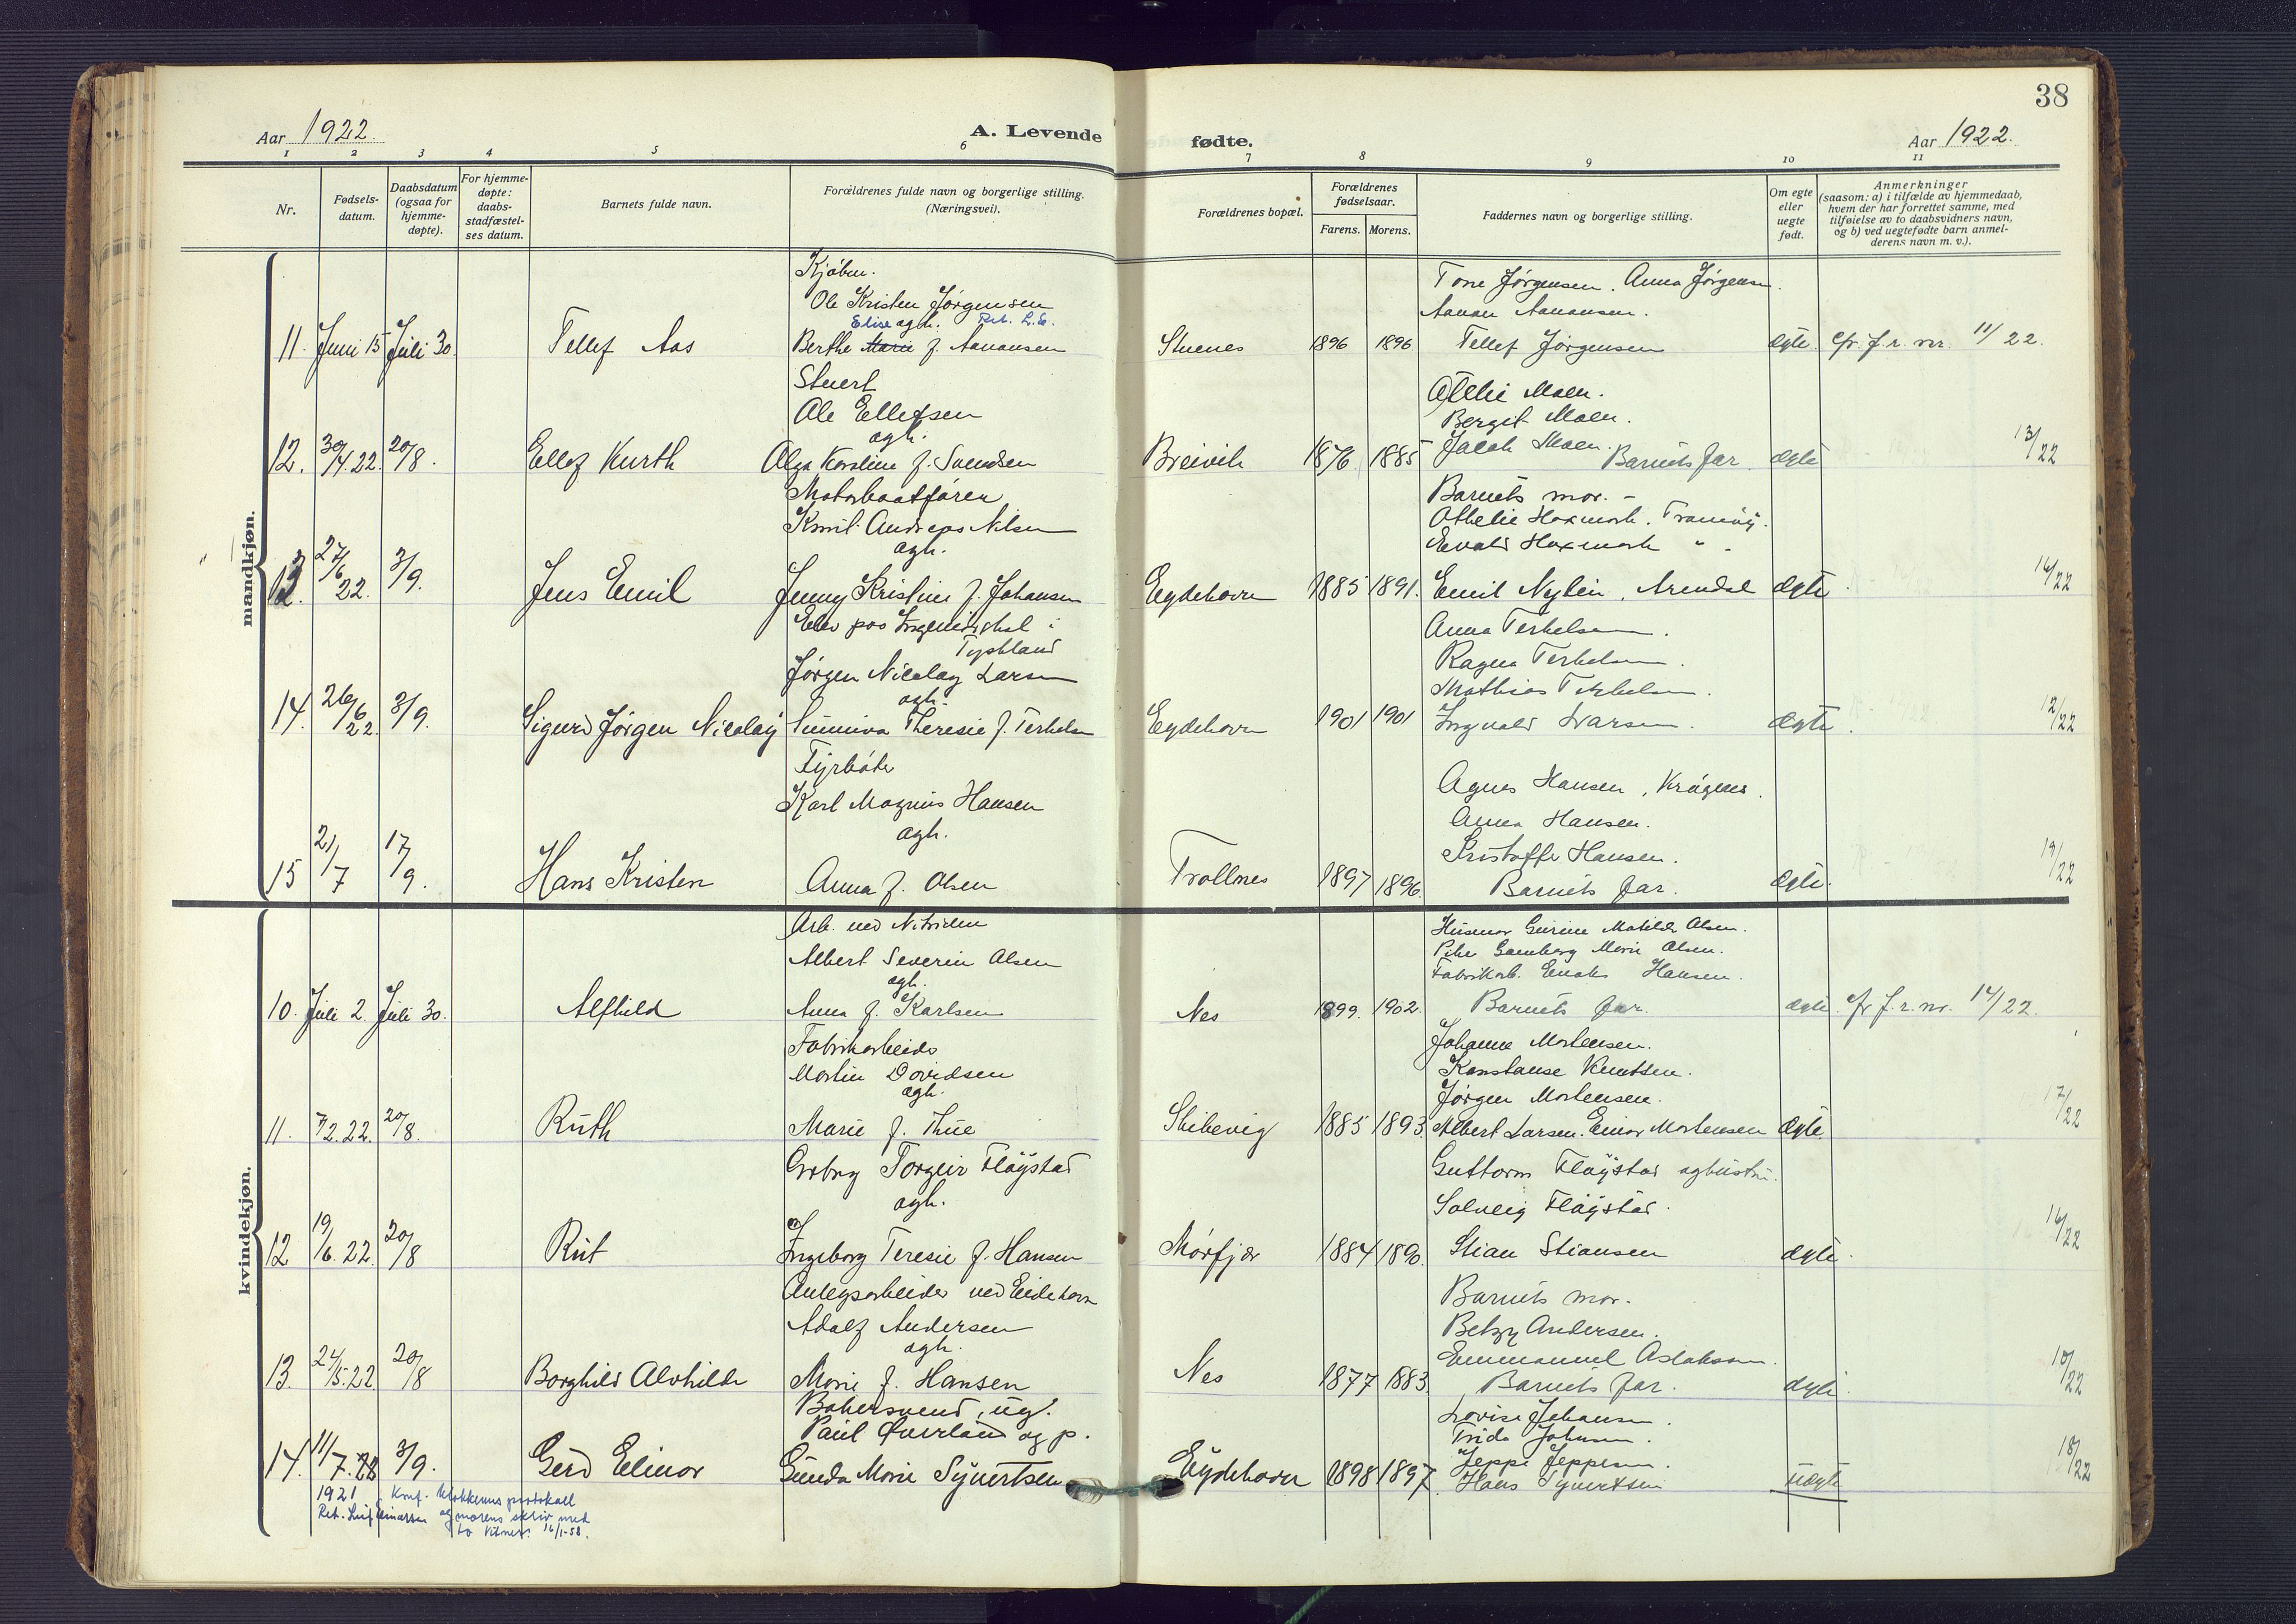 38
Aar 1922.
A. Levende
fødte.
Aar 1922.
1 2 3 4 5 6 7 8 9 10 11
Nr.
Fødsels-
datum.
Daabsdatum
(ogsaa for
hjemme-
døpte).
For hjemme-
døpte:
daabs-
stadfæstel-
ses datum.
Barnets fulde navn.
Forældrenes fulde navn og borgerlige stilling.
(Næringsvei).
Forældrenes bopæl.
Forældrenes
fødselsaar.
Farens. Morens.
Faddernes navn og borgerlige stilling.
Om egte
eller
uegte
født.
Anmerkninger
(saasom: a) i tilfælde av hjemmedaab,
hvem der har forrettet samme, med
tilføielse av to daabsvidners navn,
og b) ved uegtefødte barn anmel-
derens navn m. v.).
mandkjøn.
Tone Jørgensen. Anna Jørgensen.
Ole Kristen Jørgensen
Aanon Aanonsen.
Elise agh.
11. Juni 15 Juli 30. Tellef Aas
Berthe Marie f. Aanonsen
Stuenes 1896 1896 Tellef Jørgensen ægte. cfr. f. r. nr. 11/22.
Stuert
Ole Ellefsen
Moen.
Bergit Moen.
agh.
12. 30/4.22. 20/8. Ellef Kurth
Olga Karoline f. Svendsen
Breivik 1876 1885 Jacob Moen. Barnets far ægte 13/22
Motorbaatfører
Barnets mor. -
Andreas Nilsen
agh.
13. 27/6 22. 3/9. Jens Emil
Jenny Kristine f. Johansen
Eydehavn 1885 1891. Emil Nylein, Arendal ægte. 16/22
Elev paa Ingeniørskol i
Tyskland
Anna Terkelsen.
Ragna Terkelsen.
Jørgen Nicolay Larsen
Mathias Terkelsen.
agh.
14. 26/6 22. 3/9. Sigurd Jørgen Nicolay
Sunniva Theresie f. Terkelsen
Eydehavn 1901 1901 Ingvald Larsen. ægte. 12/22
Fyrbøter
Karl Magnus Hansen
Agnes Hansen, Krøgenes.
agh.
Anna Hansen.
Kristoffer Hansen.
15 21/7 17/9. Hans Kristen
Anna f. Olsen
Trollnes 1897 1896. Barnets far. ægte. 19/22
kvindekjøn.
Arb. ved Nitriden
Husmor Gurine Matilde Olsen.
Albert Severin Olsen
Pike Marie Olsen.
agh.
Fabrikarb. Hansen.
10. Juli 2. Juli 30. Alfhild
Anna f. Karlsen
Nes 1899. 1902. Barnets far. ægte. cfr f. r. nr. 14/22.
Fabrikarbeider
Johanne Mortensen.
Martin Davidsen
Konstanse Knutsen.
agh.
Jørgen Mortensen.
11. 7/2.22. 20/8. Ruth
Marie f. Thue
Skibevig 1885 1893 Albert Larsen. Einar Mortensen ægte 17/22
Torgeir Fløystad
Guttorm Fløystad og hustru.
agh.
Solveig Fløystad.
12 19/6.22. 20/8 Rut
Ingeborg Teresie f. Hansen
Mørfjær 1884 1890. Stian Stiansen ægte. 16/22
Anlegsarbeider ved Eidehavn
Barnets mor.
Adolf Andersen
Betzy Andersen.
agh.
Emmanuel Aslaksen.
13. 24/5.22 20/8 Borghild Alvhilde
Marie f. Hansen
Nes 1877 1883. Barnets far. ægte. 10/22
Bakersvend, ug.
Lovise Johansen.
Paul Øverland og p.
Frida Johnsen.
Jeppe Jeppesen.
14. 11/7.22 3/9. Gerd Elinor
Gunda Marie Syvertsen
Eydehavn 1898 1897. Hans Syvertsen uægte 18/22
1921. Konf. klokkerens protokoll
og morens skriv med
to vitner. 16/1-58.